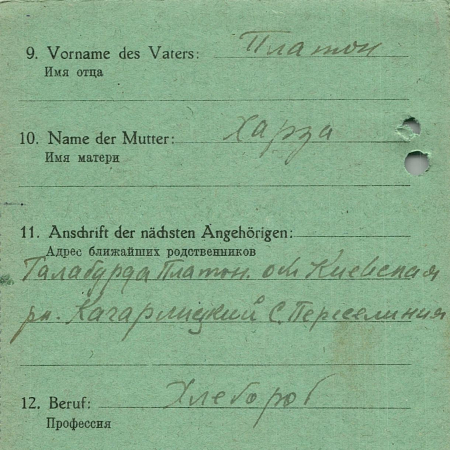 9. Vorname des Vaters: Платон
Имя отца
10. Name der Mutter: Харза
Имя матери
11. Anschrift der nächsten Angehörigen:
Адрес ближайших родственников
Галабурда Платон. обл Киевская
рн. Кагарлицкий с. Переселиния
12. Beruf: Хлебороб
Профессия